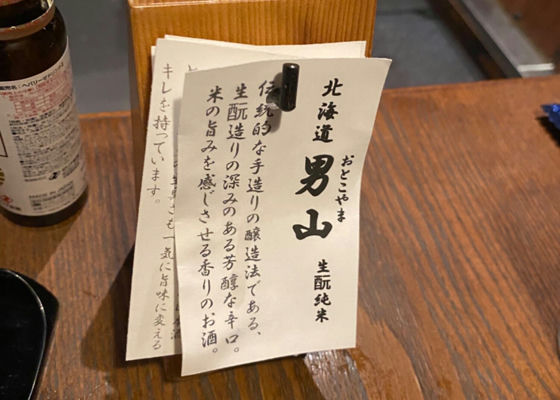 北海道
男山
おとこやま
生酛純米
伝統的な手造りの醸造法である、
生酛造りの深みのある芳醇な辛口。
米の旨みを感じさせる香りのお酒。
も一気に旨味に変える
キレを持っています。